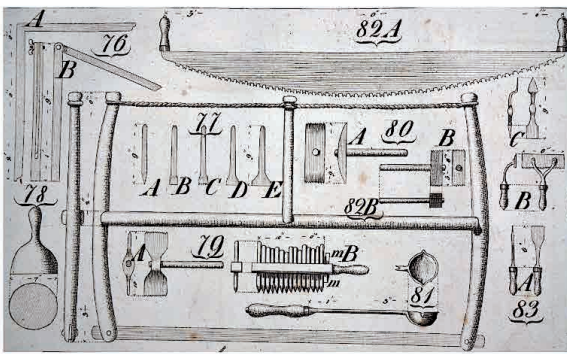 A
76
B
82A
77
A B C D E
A
80
B
C
B
82B
78
A
79
m B
m
81
A
83